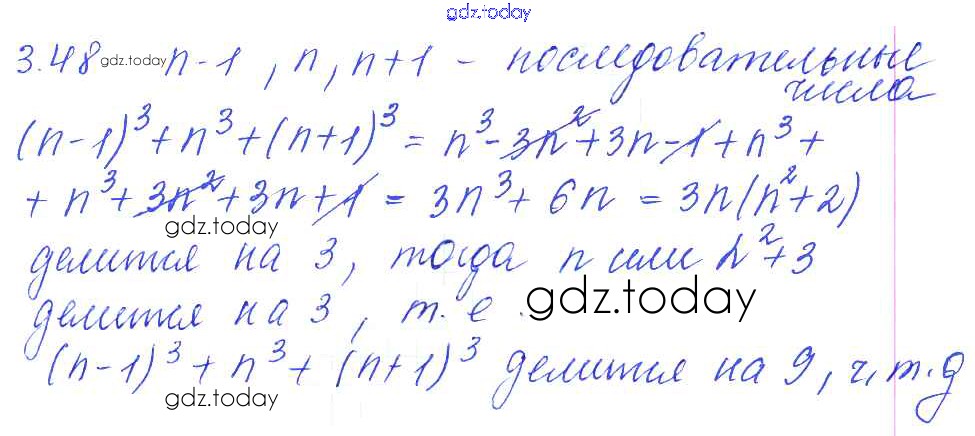 gdz.today
3.48 gdz.today n-1, n, n+1 - последовательные
числа
(n-1)³+n³+(n+1)³ = n³-3n²+3n-1+n³+
+n³+3n²+3n+1 = 3n³+6n = 3n(n²+2)
gdz.today
делится на 3, тогда n или 2²+3
делится на 3, т.е. gdz.today
(n-1)³+n³+(n+1)³ делится на 9, ч.т.д
gdz.today